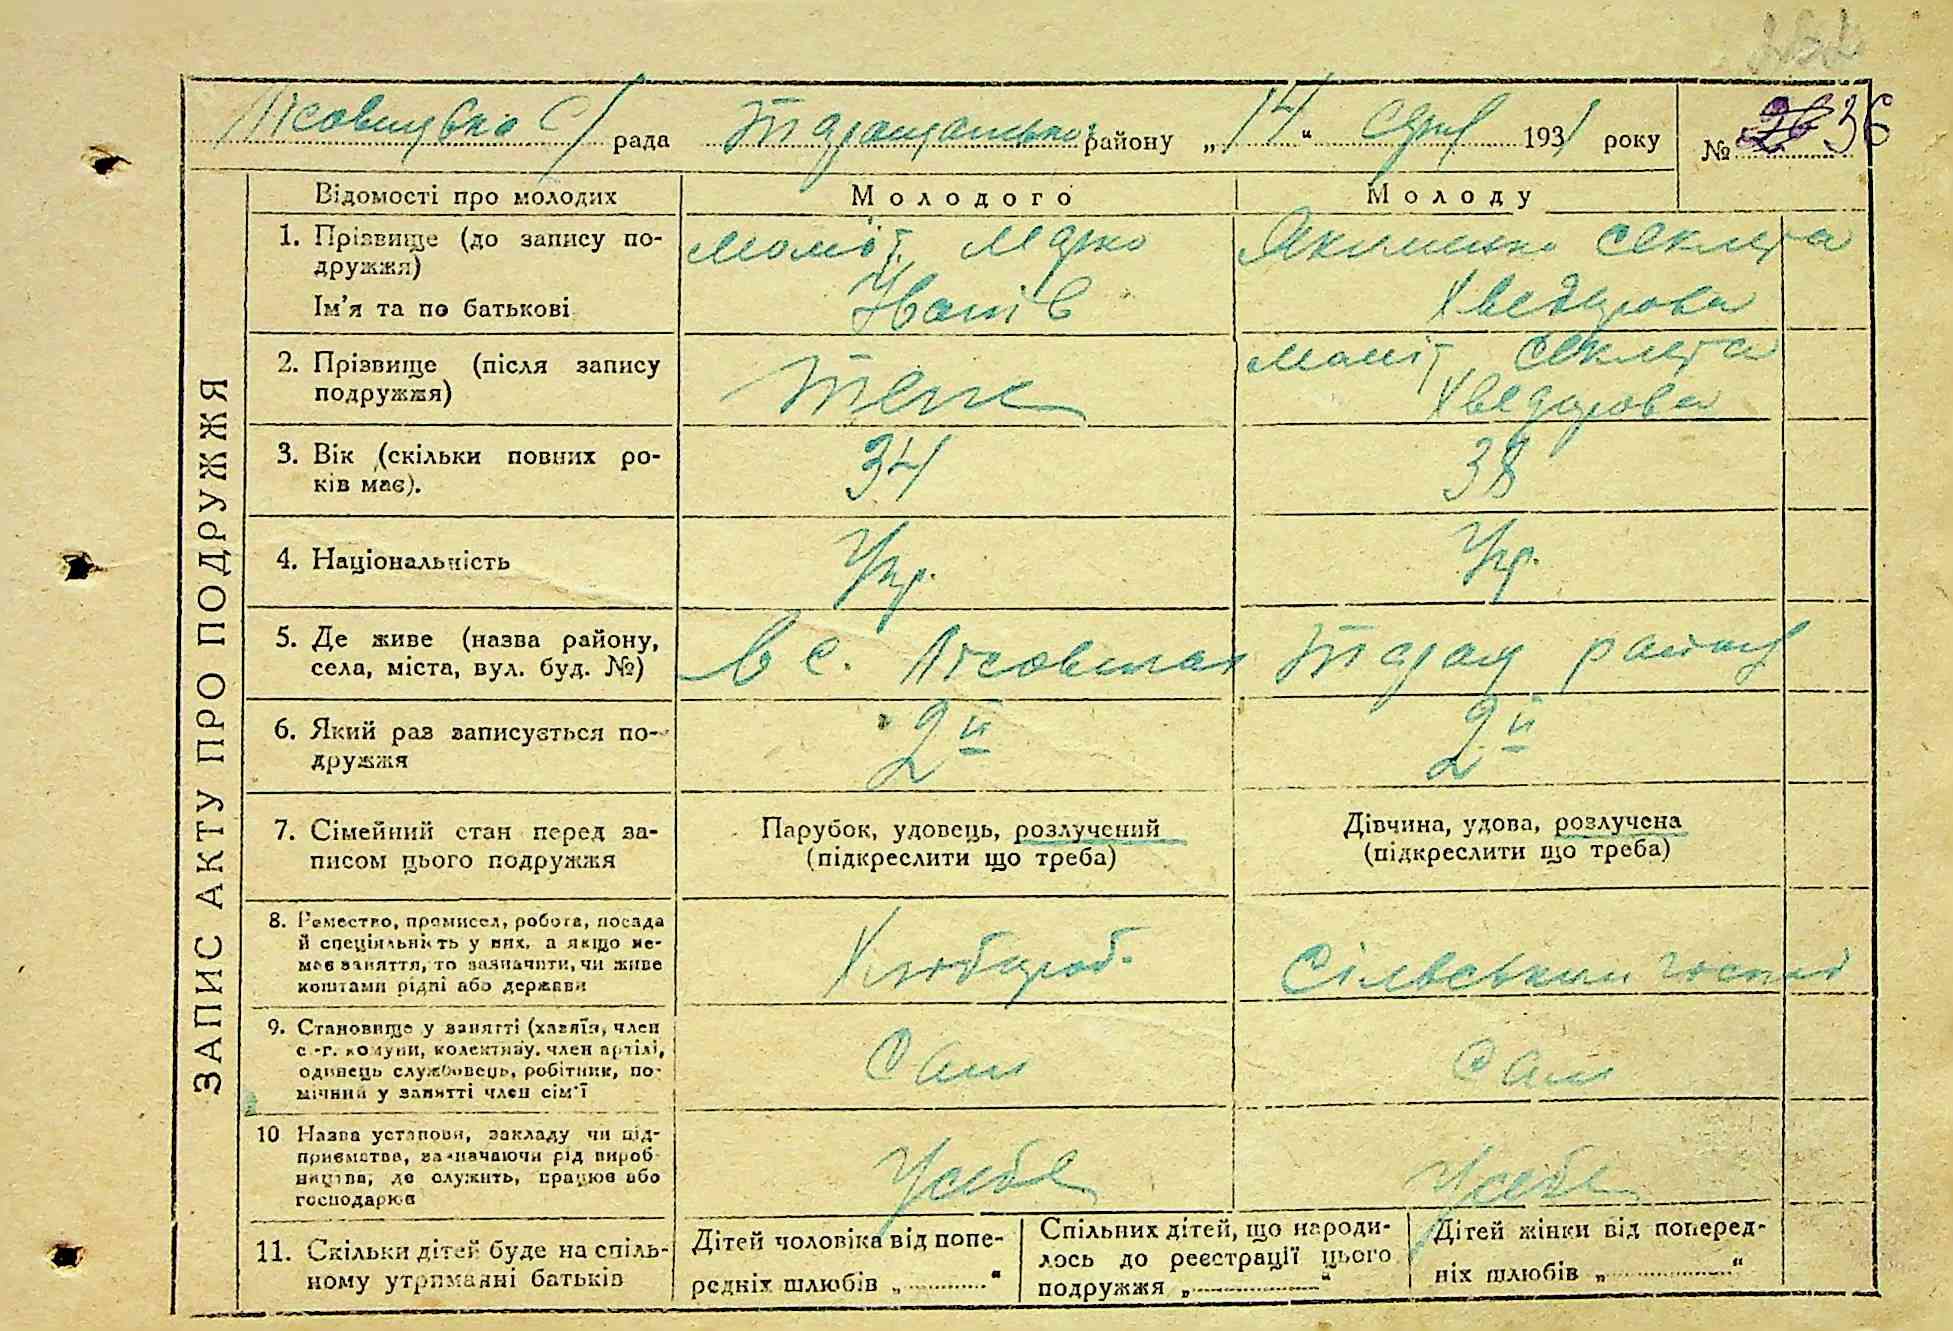 Лісовицька С/рада Таращанського району „14“ серп 1931 року № 36
ЗАПИС АКТУ ПРО ПОДРУЖЖЯ
Відомості про молодих Молодого Молоду
1. Прізвище (до запису по-
дружжя)
Ім'я та по батькові
Момот Марко
Іванів
Якименко Секлета
Хведорова
2. Прізвище (після запису
подружжя)
Теж
Момот Секлета
Хведорова
3. Вік (скільки повних ро-
ків має).
34
38
4. Національність
Укр.
Укр.
5. Де живе (назва району,
села, міста, вул. буд. №)
в с. Лісовичах Таращ району
6. Який раз записується по-
дружжя
2й
2й
7. Сімейний стан перед за-
писом цього подружжя
Парубок, удовець, розлучений
(підкреслити що треба)
Дівчина, удова, розлучена
(підкреслити що треба)
8. Ремество, промисел, робота, посада
й спеціяльність у них, а якщо не-
має заняття, то зазначити, чи живе
коштами рідні або держави
Хлібороб.
Сільським госпо
9. Становище у занятті (хазяїн, член
с.-г. комуни, колективу, член артілі,
одинець службовець, робітник, по-
мічний у занятті член сім'ї
Сам
Сам
10 Назва установи, закладу чи під-
приємства, зазначаючи рід вироб-
ництва, де служить, працює або
господарює
У себе
У себе
11. Скільки дітей буде на спіль-
ному утриманні батьків
Дітей чоловіка від попе-
редніх шлюбів „ “
Спільних дітей, що народи-
лось до реєстрації цього
подружжя „ “
Дітей жінки від поперед-
ніх шлюбів „ “